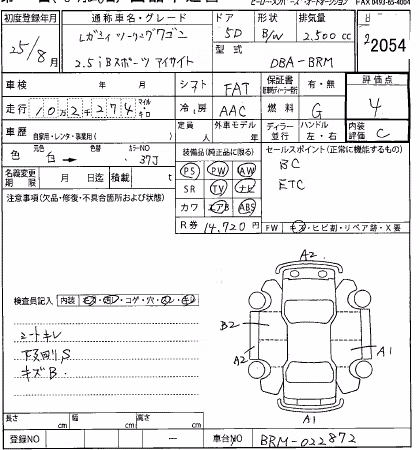 ビーローメンバーズ・オートオークション FAX 0493-65-4004
初度登録年月 通称車名・グレード ドア 形状 排気量
25/8月 レガシィ ツーリングワゴン 5D B/W 2,500 cc 2054
型式
2.5i Bスポーツ アイサイト DBA-BRM
車検 年 月 シフト FAT 保証書 有・無 評価点
走行 10万2千274 マイル キロ 冷房 AAC 燃料 G 4
車歴 自家用・レンタ・事業用( ) 定員 人 外車モデル 年 ディーラー 並行 ハンドル 左・右 内装 評価 C
色 元色 白 → 色替 カラーNO 37J 装備品(純正品に限る) セールスポイント(正常に機能するもの)
PS PW AW BC
名義変更期限 月 日迄 積載 t SR TV ナビ ETC
注意事項(欠品・修復・不具合箇所および状態) カワ エアB ABS
R券 14,720円 FW キズ・ヒビ割・リペア跡・X要
A2
検査員記入 内装 キズ・コゲ・穴
シートキレ B2
下廻りS A2 A1
キズB A1
長さ cm 幅 cm 高さ cm
登録NO ― 車台NO BRM-022872